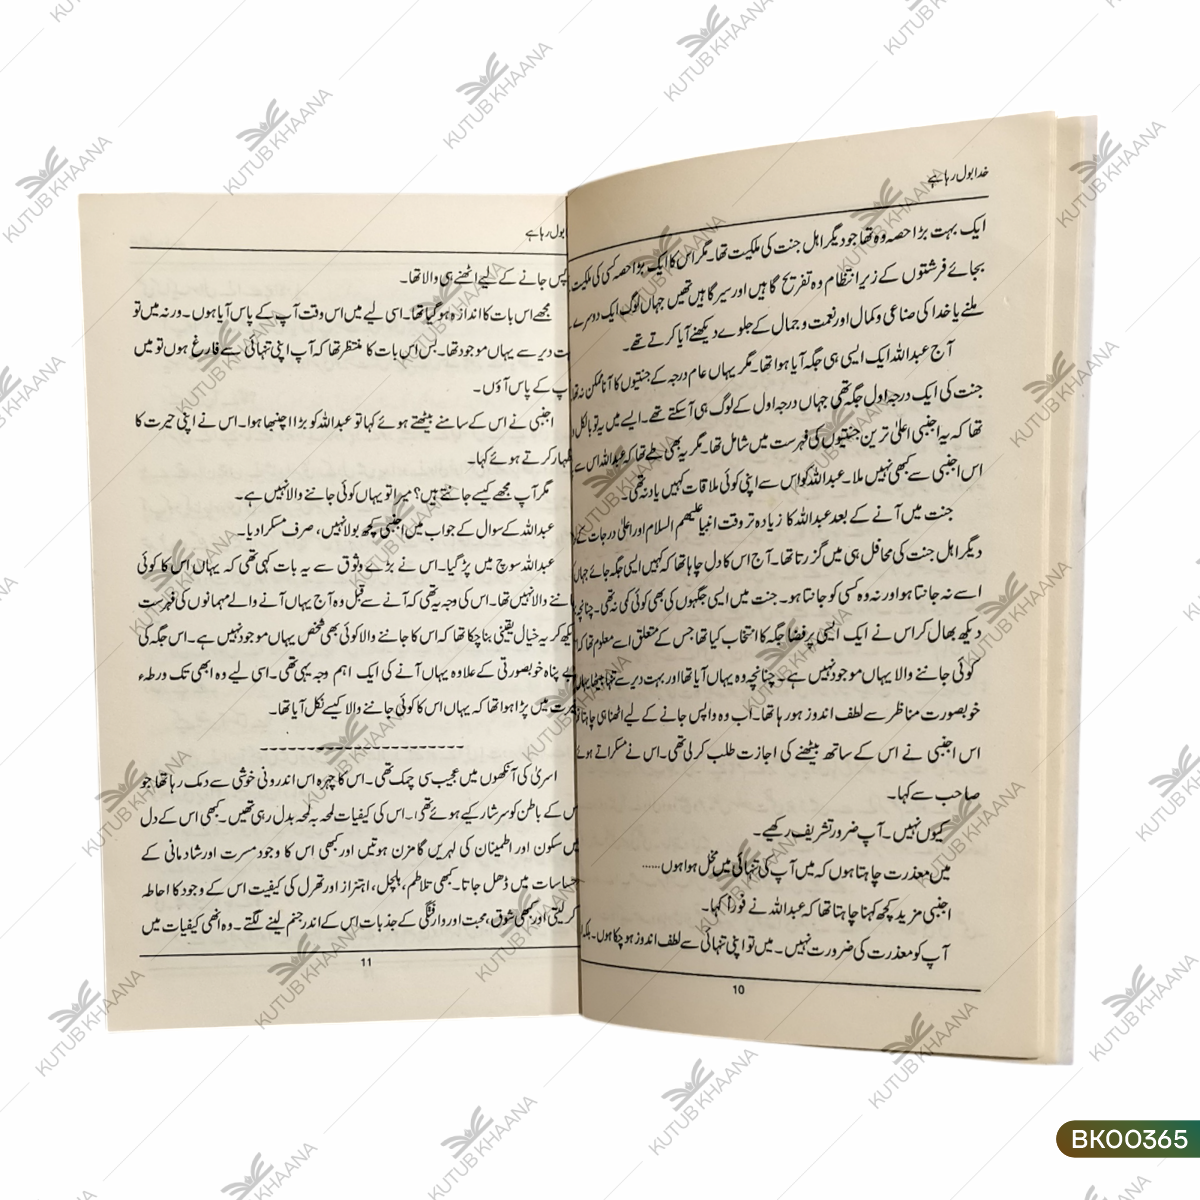 خدا بول رہا ہے
ایک بہت بڑا حصہ وہ تھا جو دیگر اہل جنت کی ملکیت تھا۔ مگر اس کا ایک بڑا حصہ کسی کی ملکیت
بجائے فرشتوں کے زیر انتظام وہ تفریح گاہیں اور سیر گاہیں تھیں جہاں لوگ ایک دوسرے
ملنے یا خدا کی صناعی و کمال اور نعمت و جمال کے جلوے دیکھنے آیا کرتے تھے۔
آج عبداللہ ایک ایسی ہی جگہ آیا ہوا تھا۔ مگر یہاں عام درجہ کے جنتیوں کا آنا ممکن نہ تھا
جنت کی ایک درجہ اول جگہ تھی جہاں درجہ اول کے لوگ ہی آسکتے تھے۔ ایسے میں یہ تو بالکل
تھا کہ یہ اجنبی اعلیٰ ترین جنتیوں کی فہرست میں شامل تھا۔ مگر یہ بھی طے تھا کہ عبداللہ اس سے
اس اجنبی سے کبھی نہیں ملا۔ عبداللہ کو اس سے اپنی کوئی ملاقات کہیں یاد نہ تھی۔
جنت میں آنے کے بعد عبداللہ کا زیادہ تر وقت انبیا علیھم السلام اور اعلیٰ درجات کے
دیگر اہل جنت کی محافل ہی میں گزرتا تھا۔ آج اس کا دل چاہا تھا کہ کہیں ایسی جگہ جائے جہاں
اسے نہ جانتا ہو اور نہ وہ کسی کو جانتا ہو۔ جنت میں ایسی جگہوں کی بھی کوئی کمی نہ تھی۔ چنانچہ
دیکھ بھال کر اس نے ایک ایسی پرفضا جگہ کا انتخاب کیا تھا جس کے متعلق اسے معلوم تھا کہ
کوئی جاننے والا یہاں موجود نہیں ہے۔ چنانچہ وہ یہاں آیا تھا اور بہت دیر سے تنہا بیٹھا یہاں
خوبصورت مناظر سے لطف اندوز ہو رہا تھا۔ اب وہ واپس جانے کے لیے اٹھنا ہی چاہتا
اس اجنبی نے اس کے ساتھ بیٹھنے کی اجازت طلب کر لی تھی۔ اس نے مسکراتے ہوئے
صاحب سے کہا۔
کیوں نہیں۔ آپ ضرور تشریف رکھیے۔
میں معذرت چاہتا ہوں کہ میں آپ کی تنہائی میں مخل ہوا ہوں......
اجنبی مزید کچھ کہنا چاہتا تھا کہ عبداللہ نے فوراً کہا۔
آپ کو معذرت کی ضرورت نہیں۔ میں تو اپنی تنہائی سے لطف اندوز ہو چکا ہوں۔ بلکہ
10
بول رہا ہے
پس جانے کے لیے اٹھنے ہی والا تھا۔
مجھے اس بات کا اندازہ ہو گیا تھا۔ اسی لیے میں اس وقت آپ کے پاس آیا ہوں۔ ورنہ میں تو
ت دیر سے یہاں موجود تھا۔ بس اس بات کا منتظر تھا کہ آپ اپنی تنہائی سے فارغ ہوں تو میں
پ کے پاس آؤں۔
اجنبی نے اس کے سامنے بیٹھتے ہوئے کہا تو عبداللہ کو بڑا اچنبھا ہوا۔ اس نے اپنی حیرت کا
ظہار کرتے ہوئے کہا۔
مگر آپ مجھے کیسے جانتے ہیں؟ میرا تو یہاں کوئی جاننے والا نہیں ہے۔
عبداللہ کے سوال کے جواب میں اجنبی کچھ بولا نہیں، صرف مسکرا دیا۔
عبداللہ سوچ میں پڑ گیا۔ اس نے بڑے وثوق سے یہ بات کہی تھی کہ یہاں اس کا کوئی
اننے والا نہیں تھا۔ اس کی وجہ یہ تھی کہ آنے سے قبل وہ آج یہاں آنے والے مہمانوں کی فہرست
یکھ کر یہ خیال یقینی بنا چکا تھا کہ اس کا جاننے والا کوئی بھی شخص یہاں موجود نہیں ہے۔ اس جگہ کی
بے پناہ خوبصورتی کے علاوہ یہاں آنے کی ایک اہم وجہ یہی تھی۔ اسی لیے وہ ابھی تک ورطۂ
یرت میں پڑا ہوا تھا کہ یہاں اس کا کوئی جاننے والا کیسے نکل آیا تھا۔
---------------------
اسریٰ کی آنکھوں میں عجیب سی چمک تھی۔ اس کا چہرہ اس اندرونی خوشی سے دمک رہا تھا جو
س کے باطن کو سرشار کیے ہوئے تھی۔ اس کی کیفیات لمحہ بہ لمحہ بدل رہی تھیں۔ کبھی اس کے دل
یں سکون اور اطمینان کی لہریں گامزن ہوتیں اور کبھی اس کا وجود مسرت اور شادمانی کے
حساسات میں ڈھل جاتا۔ کبھی تلاطم، ہلچل، اہتزاز اور تھرل کی کیفیت اس کے وجود کا احاطہ
کر لیتی اور کبھی شوق، محبت اور وارفتگی کے جذبات اس کے اندر جنم لینے لگتے۔ وہ انھی کیفیات میں
11
KUTUB KHAANA
BK00365